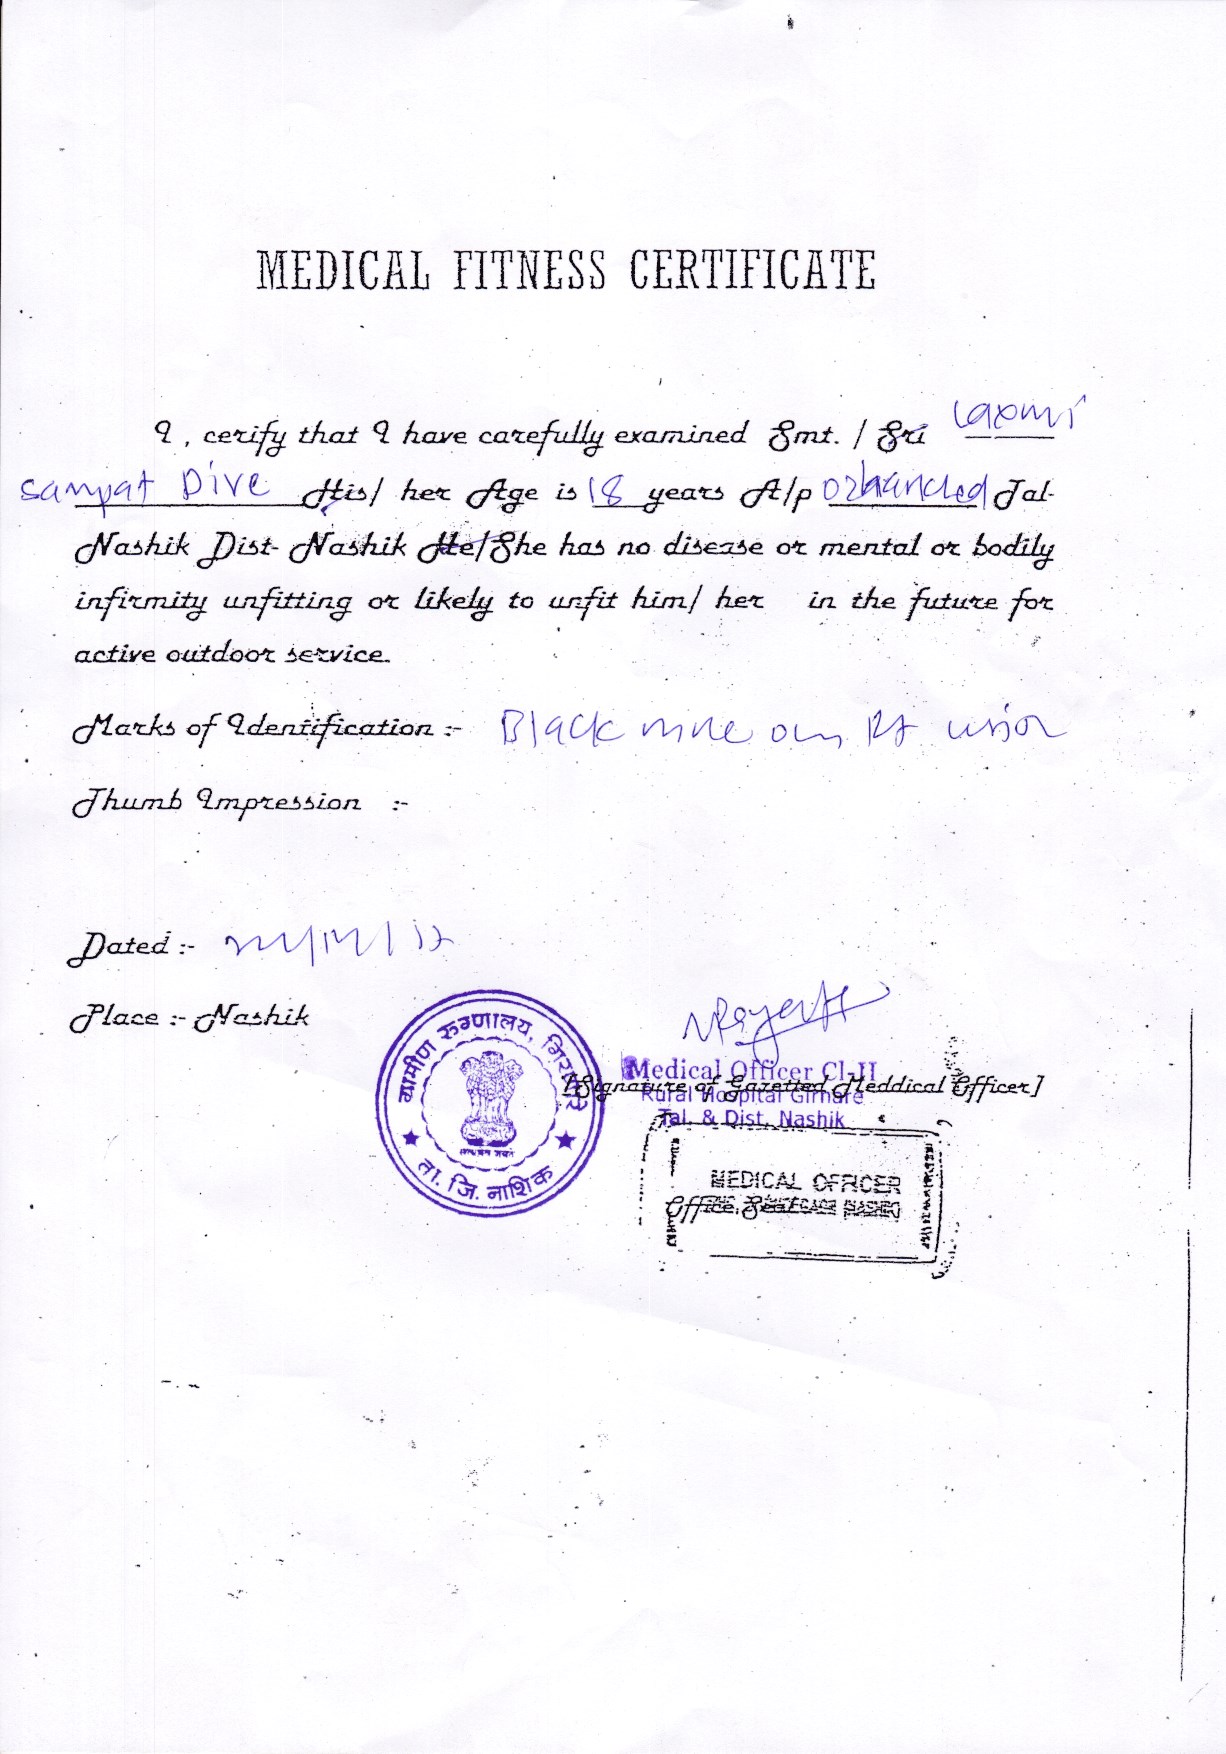 MEDICAL FITNESS CERTIFICATE
I, cerify that I have carefully examined Smt. / Sri Laxmi
Sampat Dive His/ her Age is 18 years A/p Tal-
Nashik Dist- Nashik He/She has no disease or mental or bodily
infirmity unfitting or likely to unfit him/ her in the future for
active outdoor service.
Marks of Identification :- Black mole on Rt
Thumb Impression :-
Dated :-
Place :- Nashik
ग्रामीण रुग्णालय, गिरणारे
ता. जि. नाशिक
Medical Officer Cl-II
[Signature of Gazetted Meddical Officer]
Rural Hospital Girnare
Tal. & Dist. Nashik
MEDICAL OFFICER
Office Seal